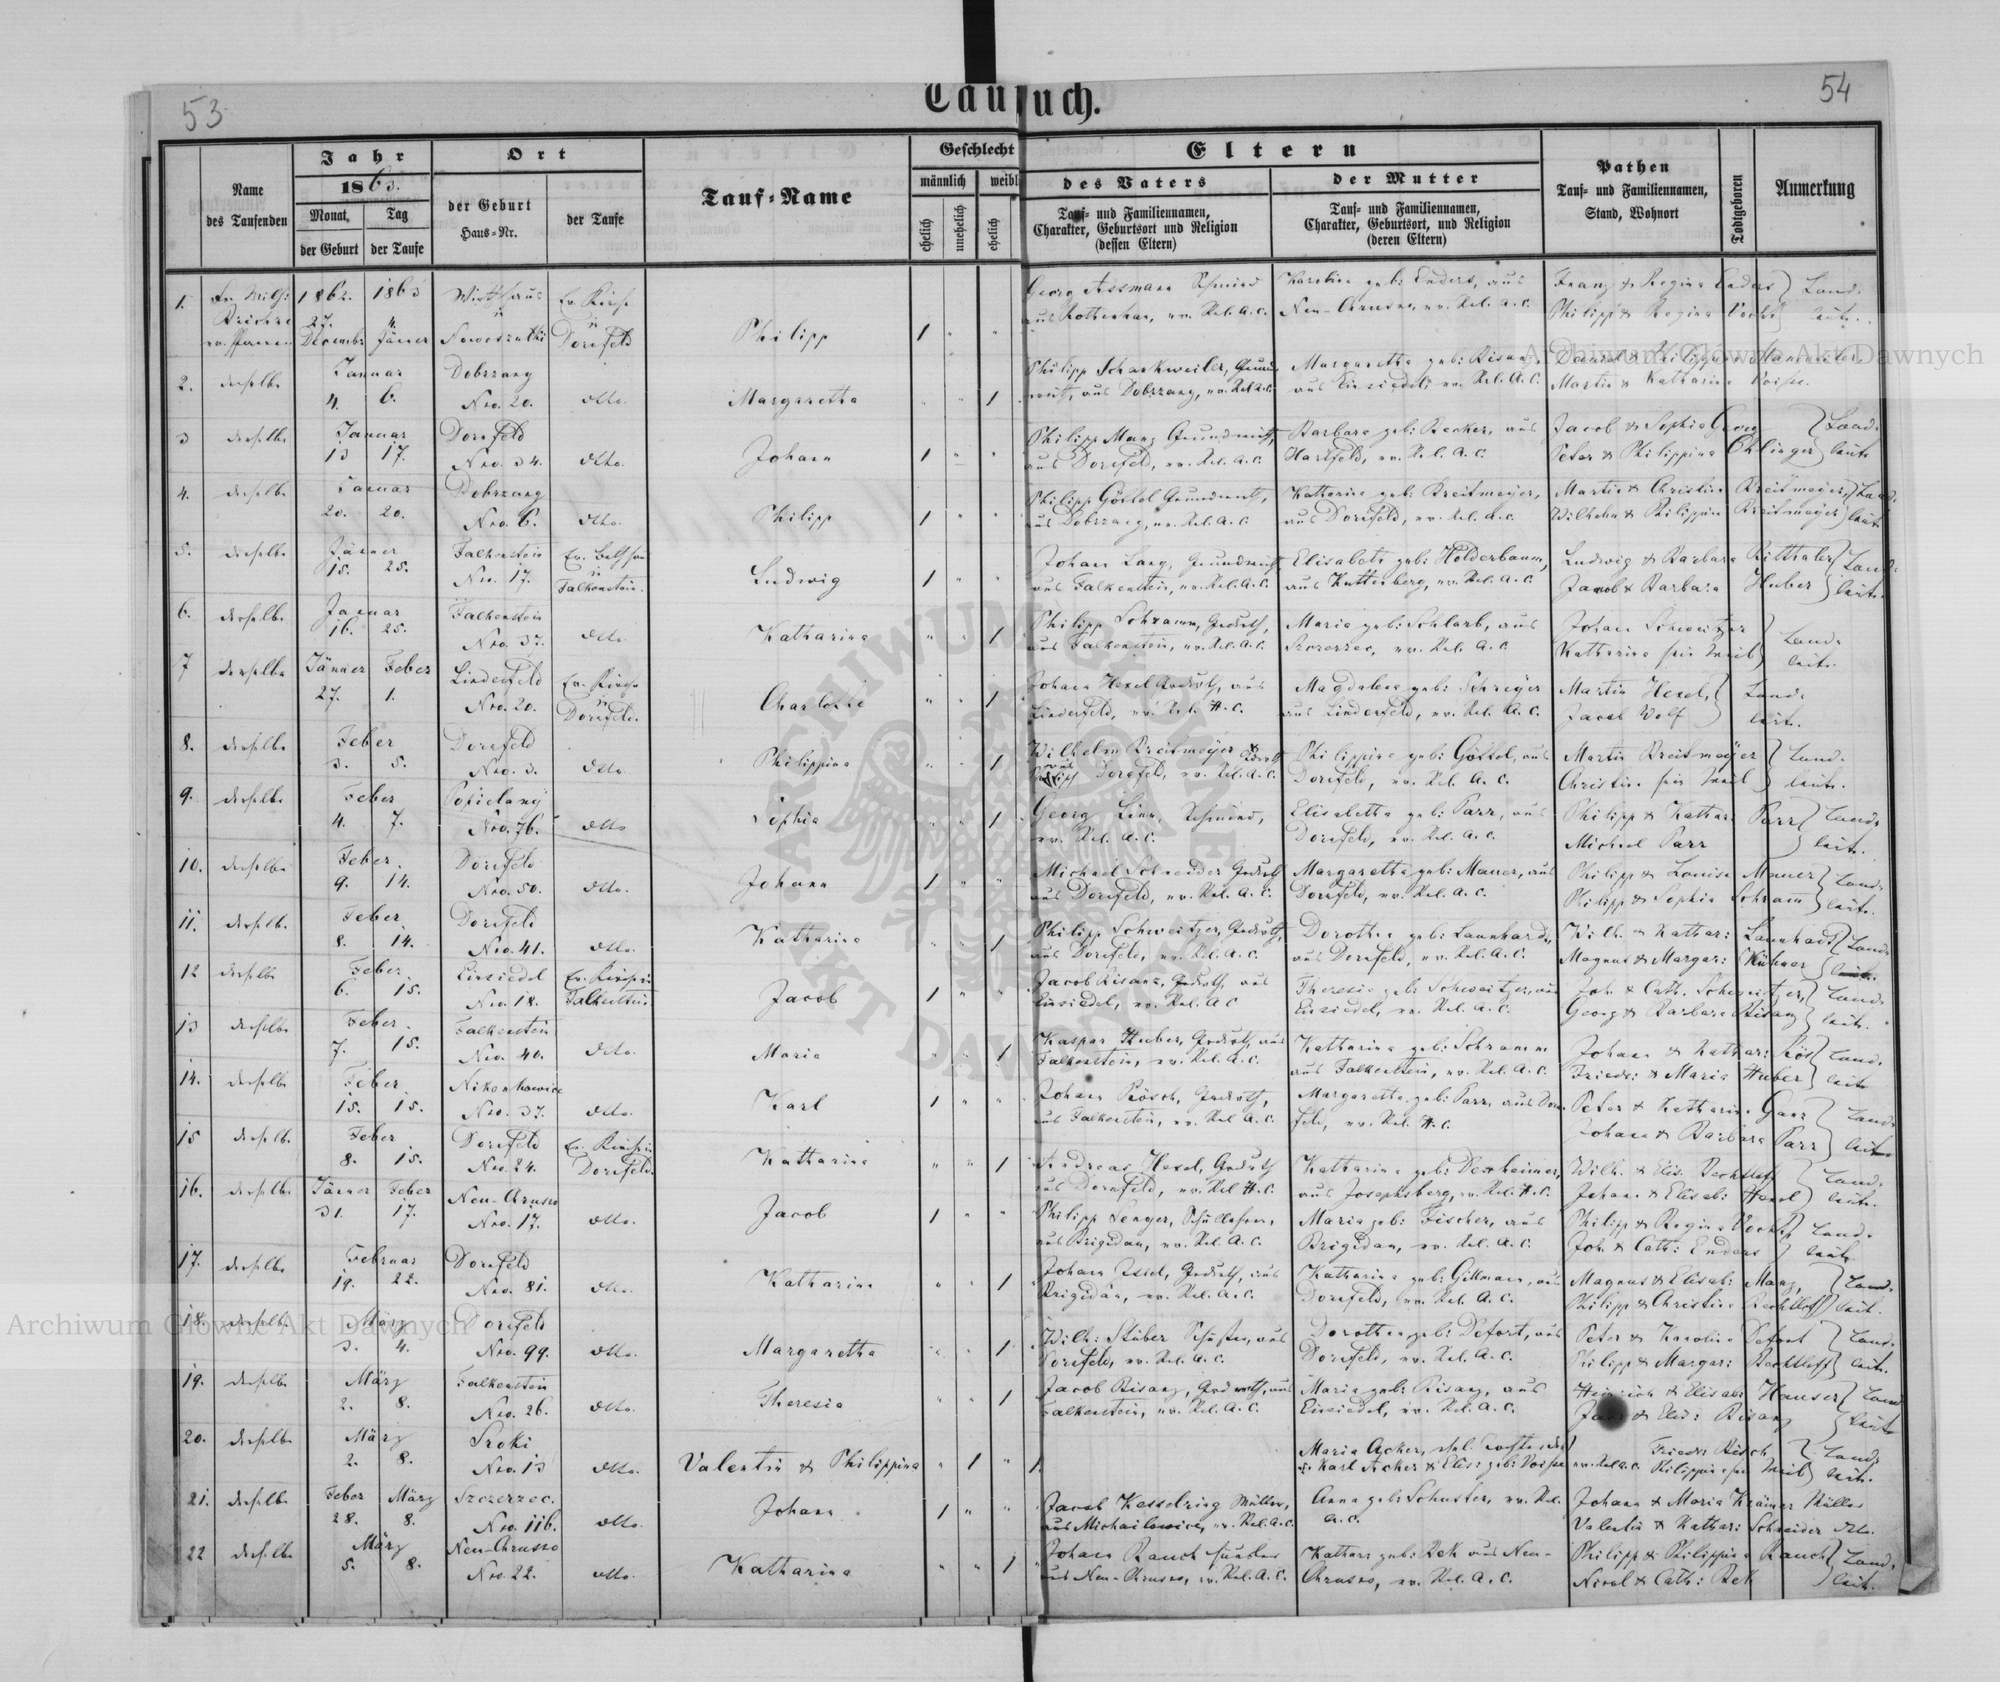 53
54
Taufbuch.
Name
des Taufenden
Jahr
1863.
Monat,
der Geburt
Tag
der Taufe
Ort
der Geburt
Haus-Nr.
der Taufe
Tauf-Name
Geschlecht
männlich
weibl
ehelich
unehelich
ehelich
Eltern
des Vaters
Tauf- und Familiennamen,
Charakter, Geburtsort und Religion
(dessen Eltern)
der Mutter
Tauf- und Familiennamen,
Charakter, Geburtsort, und Religion
(deren Eltern)
Pathen
Tauf- und Familiennamen,
Stand, Wohnort
Todtgeboren
Anmerkung
1. 1862. 1863 Wirthshaus Ev. Kirche Georg Assmann Schmied Karolina geb: Enders, aus Franz & Regina Enders Land-
27. 4. in in aus Rottenhan, ev. Rel. A. C. Neu-Chrusno, ev. Rel. A. C. Philipp & Regina leute.
Decembr Jäner Dornfeld Philipp 1
2. derselbe Januar Dobrzany Philipp Schankweiler, aus Dobrzany, ev. Rel. A. C. Margaretha geb: Bisanz, aus Einsiedel, ev. Rel. A. C. Daniel & Philippina Manweiler.
4. 6. Nro. 20. dtto. Margaretha 1 Martin & Katharina
3 derselbe Januar Dornfeld Philipp Manz Grundwirth, Barbara geb: Becker, aus Jacob & Sophia Georg Land-
13 17. Nro. 34. dtto. Johann 1 aus Dornfeld, ev. Rel. A. C. Hartfeld, ev. Rel. A. C. Peter & Philippina Ohlinger leute
4. derselbe Januar Dobrzany Philipp Göttel Grundwirth, Katharina geb: Breitmeyer, Martin & Christina Breitmeyer, Land-
20. 20. Nro. 6. dtto. Philipp 1 aus Dobrzany, ev. Rel. A. C. aus Dornfeld, ev. Rel. A. C. Wilhelm & Philippina Breitmeyer leute
5. derselbe Jänner Falkenstein Ev. Bethhaus Johann Lang, Grundwirth, Elisabeth geb: Holderbaum, Ludwig & Barbara Ritthaler Land-
15. 25. Nro. 17. in Falkenstein. Ludwig 1 aus Falkenstein, ev. Rel. A. C. aus Kuttenberg, ev. Rel. A. C. Jacob & Barbara Huber leute.
6. derselbe Januar Falkenstein Philipp Schramm, Grdwth, Maria geb: Schlarb, aus Johann Schweitzer Land-
16. 25. Nro. 37. dtto. Katharina 1 aus Falkenstein, ev. Rel. A. C. Szczerzec, ev. Rel. A. C. Katharina sein Weib leute.
7 derselbe Jänner Feber Lindenfeld Ev. Kirche Johann Hexel Grdwth, aus Magdalena geb: Schreyer Martin Hexel, Land-
27. 1. Nro. 20. in Dornfeld. Charlotte 1 Lindenfeld, ev. Rel. H. C. aus Lindenfeld, ev. Rel. A. C. Jacob Wolf leute.
8. derselbe Feber Dornfeld Wilhelm Breitmeyer Grdwth Philippina geb: Göttel, aus Martin Breitmeyer Land-
3. 5. Nro. 3. dtto. Philippina 1 aus Dornfeld, ev. Rel. A. C. Dornfeld, ev. Rel. A. C. Christina sein Weib leute.
9. derselbe Feber Popielany Georg Linn, Schmied, Elisabetha geb: Parr, aus Philipp & Kathar: Parr Land-
4. 7. Nro. 76. dtto Sophia 1 ev. Rel. A. C. Dornfeld, ev. Rel. A. C. Michael Parr leute.
10. derselbe Feber. Dornfeld Michael Schneider Grdwth Margaretha geb: Mauer, aus Philipp & Louisa Mauer Land-
9. 14. Nro. 50. dtto. Johann 1 aus Dornfeld, ev. Rel. A. C. Dornfeld, ev. Rel. A. C. Philipp & Sophia Schram leute.
11. derselbe Feber Dornfeld Philipp Schweitzer, Grdwth, Dorothea geb: Launhardt, Wilh. & Kathar: Launhardt Land-
8. 14. Nro. 41. dtto. Katharina 1 aus Dornfeld, ev. Rel. A. C. aus Dornfeld, ev. Rel. A. C. Magnus & Margar: Kühner leute.
12 derselbe Feber. Einsiedel Ev. Kirche in Jacob Bisanz, Grdwth, aus Theresia geb: Schweitzer, aus Joh. & Cath. Schweitzer, Land-
6. 15. Nro. 18. Falkenstein Jacob 1 Einsiedel, ev. Rel. A. C Einsiedel, ev. Rel. A. C. Georg & Barbara Bisanz leute.
13 derselbe Feber. Falkenstein Kaspar Huber, Grdwth, aus Katharina geb: Schramm Johann & Kathar: Land-
7. 15. Nro. 40. dtto. Maria 1 Falkenstein, ev. Rel. A. C. aus Falkenstein, ev. Rel. A. C. Friedr: & Maria Huber leute
14. derselbe Feber. Nikonkowice Johann Pösch, Grdwth, Margaretha geb: Parr, aus Dorn- Peter & Katharina Ganz Land-
15. 15. Nro. 37. dtto. Karl 1 aus Falkenstein, ev. Rel. A. C. feld, ev. Rel. H. C. Johann & Barbara Parr leute
15 derselbe Feber Dornfeld Ev. Kirche in Andreas Hexel, Grdwth Katharina geb: Dexheimer, Wilh. & Elis. Bechtloff Land-
8. 15. Nro. 24. Dornfeld. Katharina 1 aus Dornfeld, ev. Rel. H. C. aus Josephsberg, ev. Rel. H. C. Johann & Elisab: Hexel leute.
16. derselbe Jänner Feber Neu-Chrusno Philipp Senger, Schullehrer, Maria geb: Fischer, aus Philipp & Regina Land-
31. 17. Nro. 17. dtto. Jacob 1 aus Brigidau, ev. Rel. A. C. Brigidau, ev. Rel. A. C. Joh. & Cath: Enders leute
17. derselbe Februar Dornfeld Johann Grdwth, aus Katharina geb: Gillmann, aus Magnus & Elisab: Manz, Land-
19. 22. Nro. 81. dtto. Katharina 1 Brigidau, ev. Rel. A. C. Dornfeld, ev. Rel. A. C. Philipp & Christina Bechtloff leute.
18. derselbe März Dornfeld Wilh: Stuber Schuster, aus Dorothea geb: Defort, aus Peter & Karolina Defort Land-
3. 4. Nro. 99. dtto. Margaretha 1 Dornfeld, ev. Rel. A. C. Dornfeld, ev. Rel. A. C. Philipp & Margar: Bechtloff leute.
19. derselbe März Falkenstein Jacob Bisanz, Grdwrth, aus Maria geb: Bisanz, aus Heinrich & Elisab: Hauser Land
2. 8. Nro. 26. dtto. Theresia 1 Falkenstein, ev. Rel. A. C. Einsiedel, ev. Rel. A. C. & Elis: Bisanz leute
20. derselbe März Sroki Maria Acker, Friedr: Land-
2. 8. Nro. 13 dtto. Valentin & Philippina 1 1. Karl Acker & Elis: geb: ev. Rel. A. C. Philippina sein Weib leute.
21. derselbe Feber März Szczerzec. Jacob Kesselring Müller, Anna geb: Schuster, ev. Rel. Johann & Maria Krämer Müller
28. 8. Nro. 116. dtto. Johann 1 aus Michailowice, ev. Rel. A. C. A. C. Valentin & Kathar: Schneider dtto.
22 derselbe März Neu-Chrusno Johann Rauch aus Neu-Chrusno, ev. Rel. A. C. Kathar: geb: Bek aus Neu- Philipp & Philippina Rauch Land-
5. 8. Nro. 22. dtto. Katharina 1 Chrusno, ev. Rel. A. C. Nicol & Cath: Bek leute.
Archiwum Główne Akt Dawnych
Archiwum Główne Akt Dawnych
ARCHIWUM GŁÓWNE AKT DAWNYCH